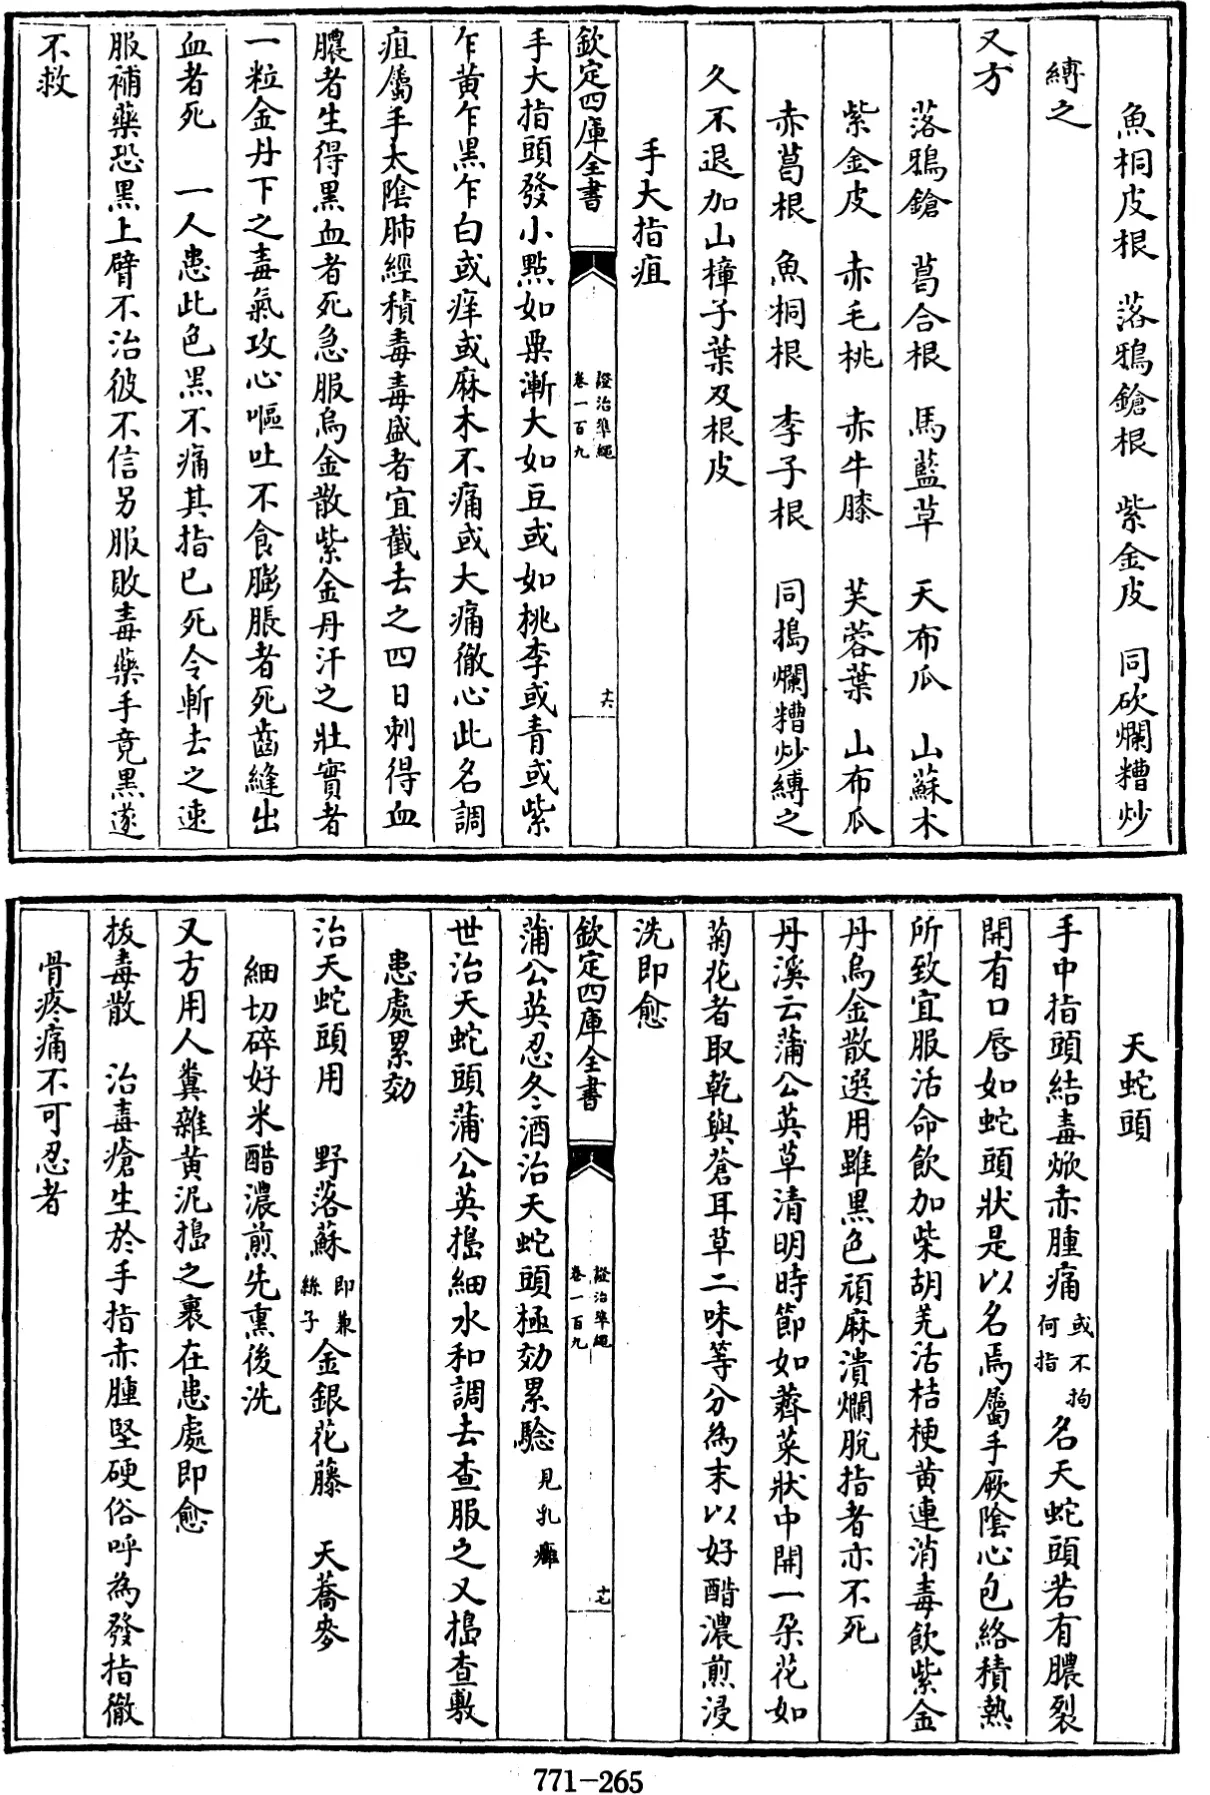 魚桐皮根　落鴉鎗根　紫金皮　同砍爛糟炒
縛之
又方
落鴉鎗　葛合根　馬藍草　天布瓜　山蘇木
紫金皮　赤毛桃　赤牛膝　芙蓉葉　山布瓜
赤葛根　魚桐根　李子根　同搗爛糟炒縛之
久不退加山樟子葉及根皮
手大指疽
欽定四庫全書
證治準繩
卷一百九
十六
手大指頭發小點如粟漸大如豆或如桃李或青或紫
乍黄乍黑乍白或痒或麻木不痛或大痛徹心此名調
疽屬手太陰肺經積毒毒盛者宜截去之四日刺得血
膿者生得黑血者死急服烏金散紫金丹汗之壯實者
一粒金丹下之毒氣攻心嘔吐不食膨脹者死齒縫出
血者死　一人患此色黑不痛其指已死令斬去之速
服補藥恐黑上臂不治彼不信另服敗毒藥手竟黑遂
不救
天蛇頭
手中指頭結毒焮赤腫痛或不拘何指名天蛇頭若有膿裂
開有口唇如蛇頭狀是以名焉屬手厥陰心包絡積熱
所致宜服活命飲加柴胡羌活桔梗黄連消毒飲紫金
丹烏金散選用雖黑色頑麻潰爛脫指者亦不死
丹溪云蒲公英草清明時節如薺菜狀中開一朶花如
菊花者取乾與蒼耳草二味等分為末以好醋濃煎浸
洗即愈
欽定四庫全書
證治準繩
卷一百九
十七
蒲公英忍冬酒治天蛇頭極効累驗見乳癰
世治天蛇頭蒲公英搗細水和調去查服之又搗查敷
患處累効
治天蛇頭用　野落蘇即兼絲子金銀花藤　天蕎麥
細切碎好米醋濃煎先熏後洗
又方用人糞雜黄泥搗之裹在患處即愈
拔毒散　治毒瘡生於手指赤腫堅硬俗呼為發指徹
骨疼痛不可忍者
771-265